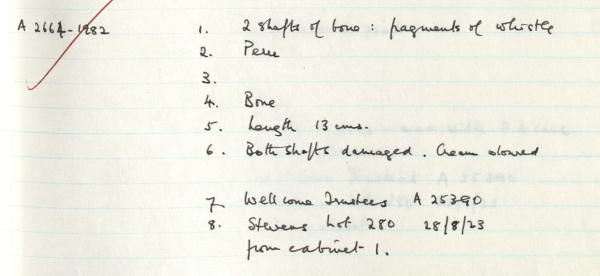 A 2664-1982 1. 2 shafts of bone : fragments of whistle
2. Peru
3.
4. Bone
5. Length 13 cms.
6. Both shafts damaged. Cream coloured
7. Wellcome Trustees A 25390
8. Stevens Lot 280 28/8/23
from cabinet 1.